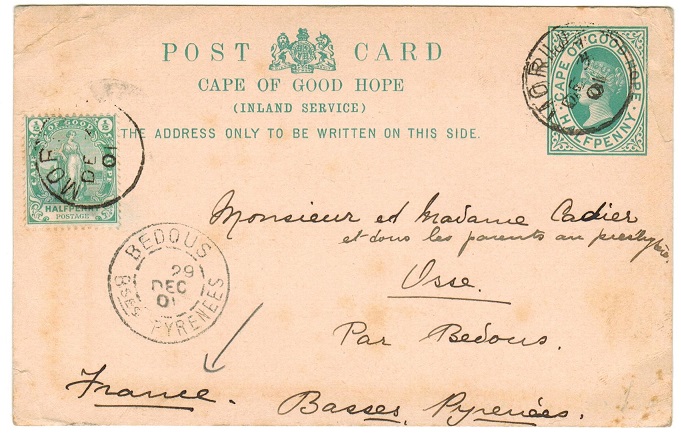 POST CARD
CAPE OF GOOD HOPE
(INLAND SERVICE)
THE ADDRESS ONLY TO BE WRITTEN ON THIS SIDE.
CAPE OF GOOD HOPE
HALFPENNY
DE
01
½ ½
OF GOOD
HALFPENNY
POSTAGE
MOR
DE
01
BEDOUS
29
DEC
01
Bses PYRENEES
Monsieur et Madame Cadier
et tous les parents au presbytère.
Osse.
Par Bedous.
France.
Basses Pyrenées.